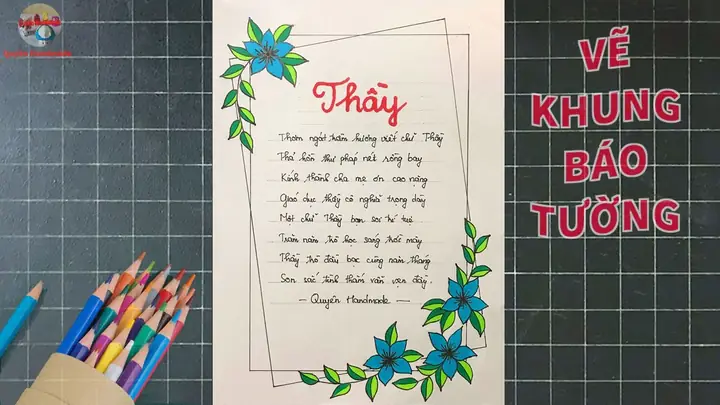 Thầy
Thơm ngát trầm hương viết chữ Thầy
Thả hồn thư pháp nét rồng bay
Kính thành cha mẹ ơn cao nặng
Giáo dục thầy cô nghĩa trọng dày
Một chữ Thầy bạn sơ trí tuệ
Trăm năm trò học sáng
Thầy trò đầu bạc cùng năm tháng
Son sắc tình thâm vẫn vẹn đầy.
— Quyên Handmade —
VẼ
KHUNG
BÁO
TƯỜNG